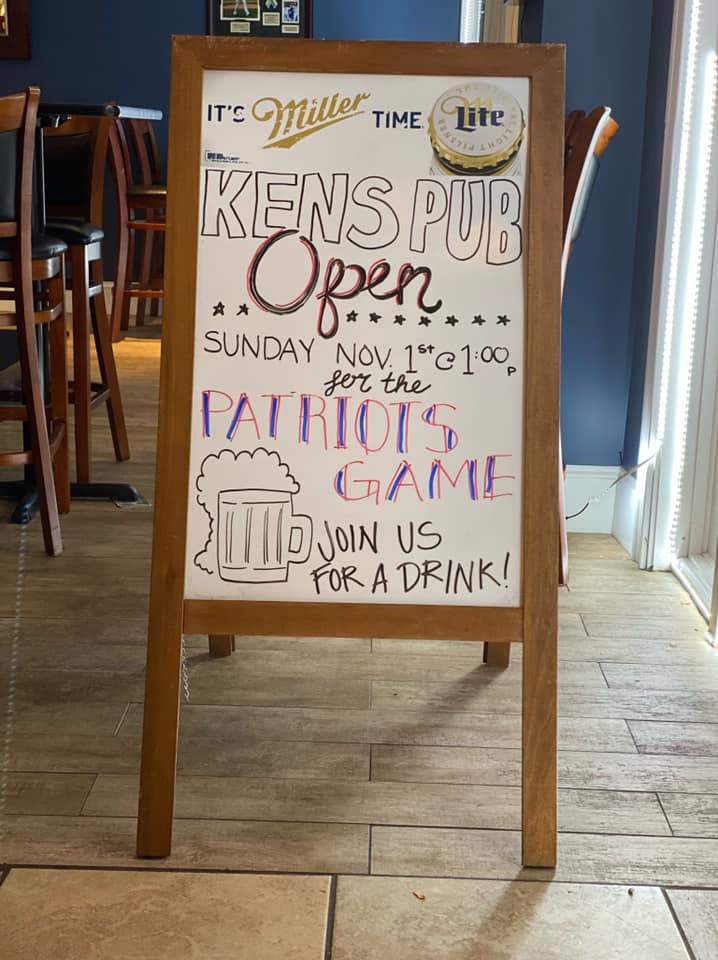 IT'S Miller TIME.
Lite
KENS PUB
Open
SUNDAY NOV. 1st @ 1:00p
for the
PATRIOTS
GAME
JOIN US
FOR A DRINK!